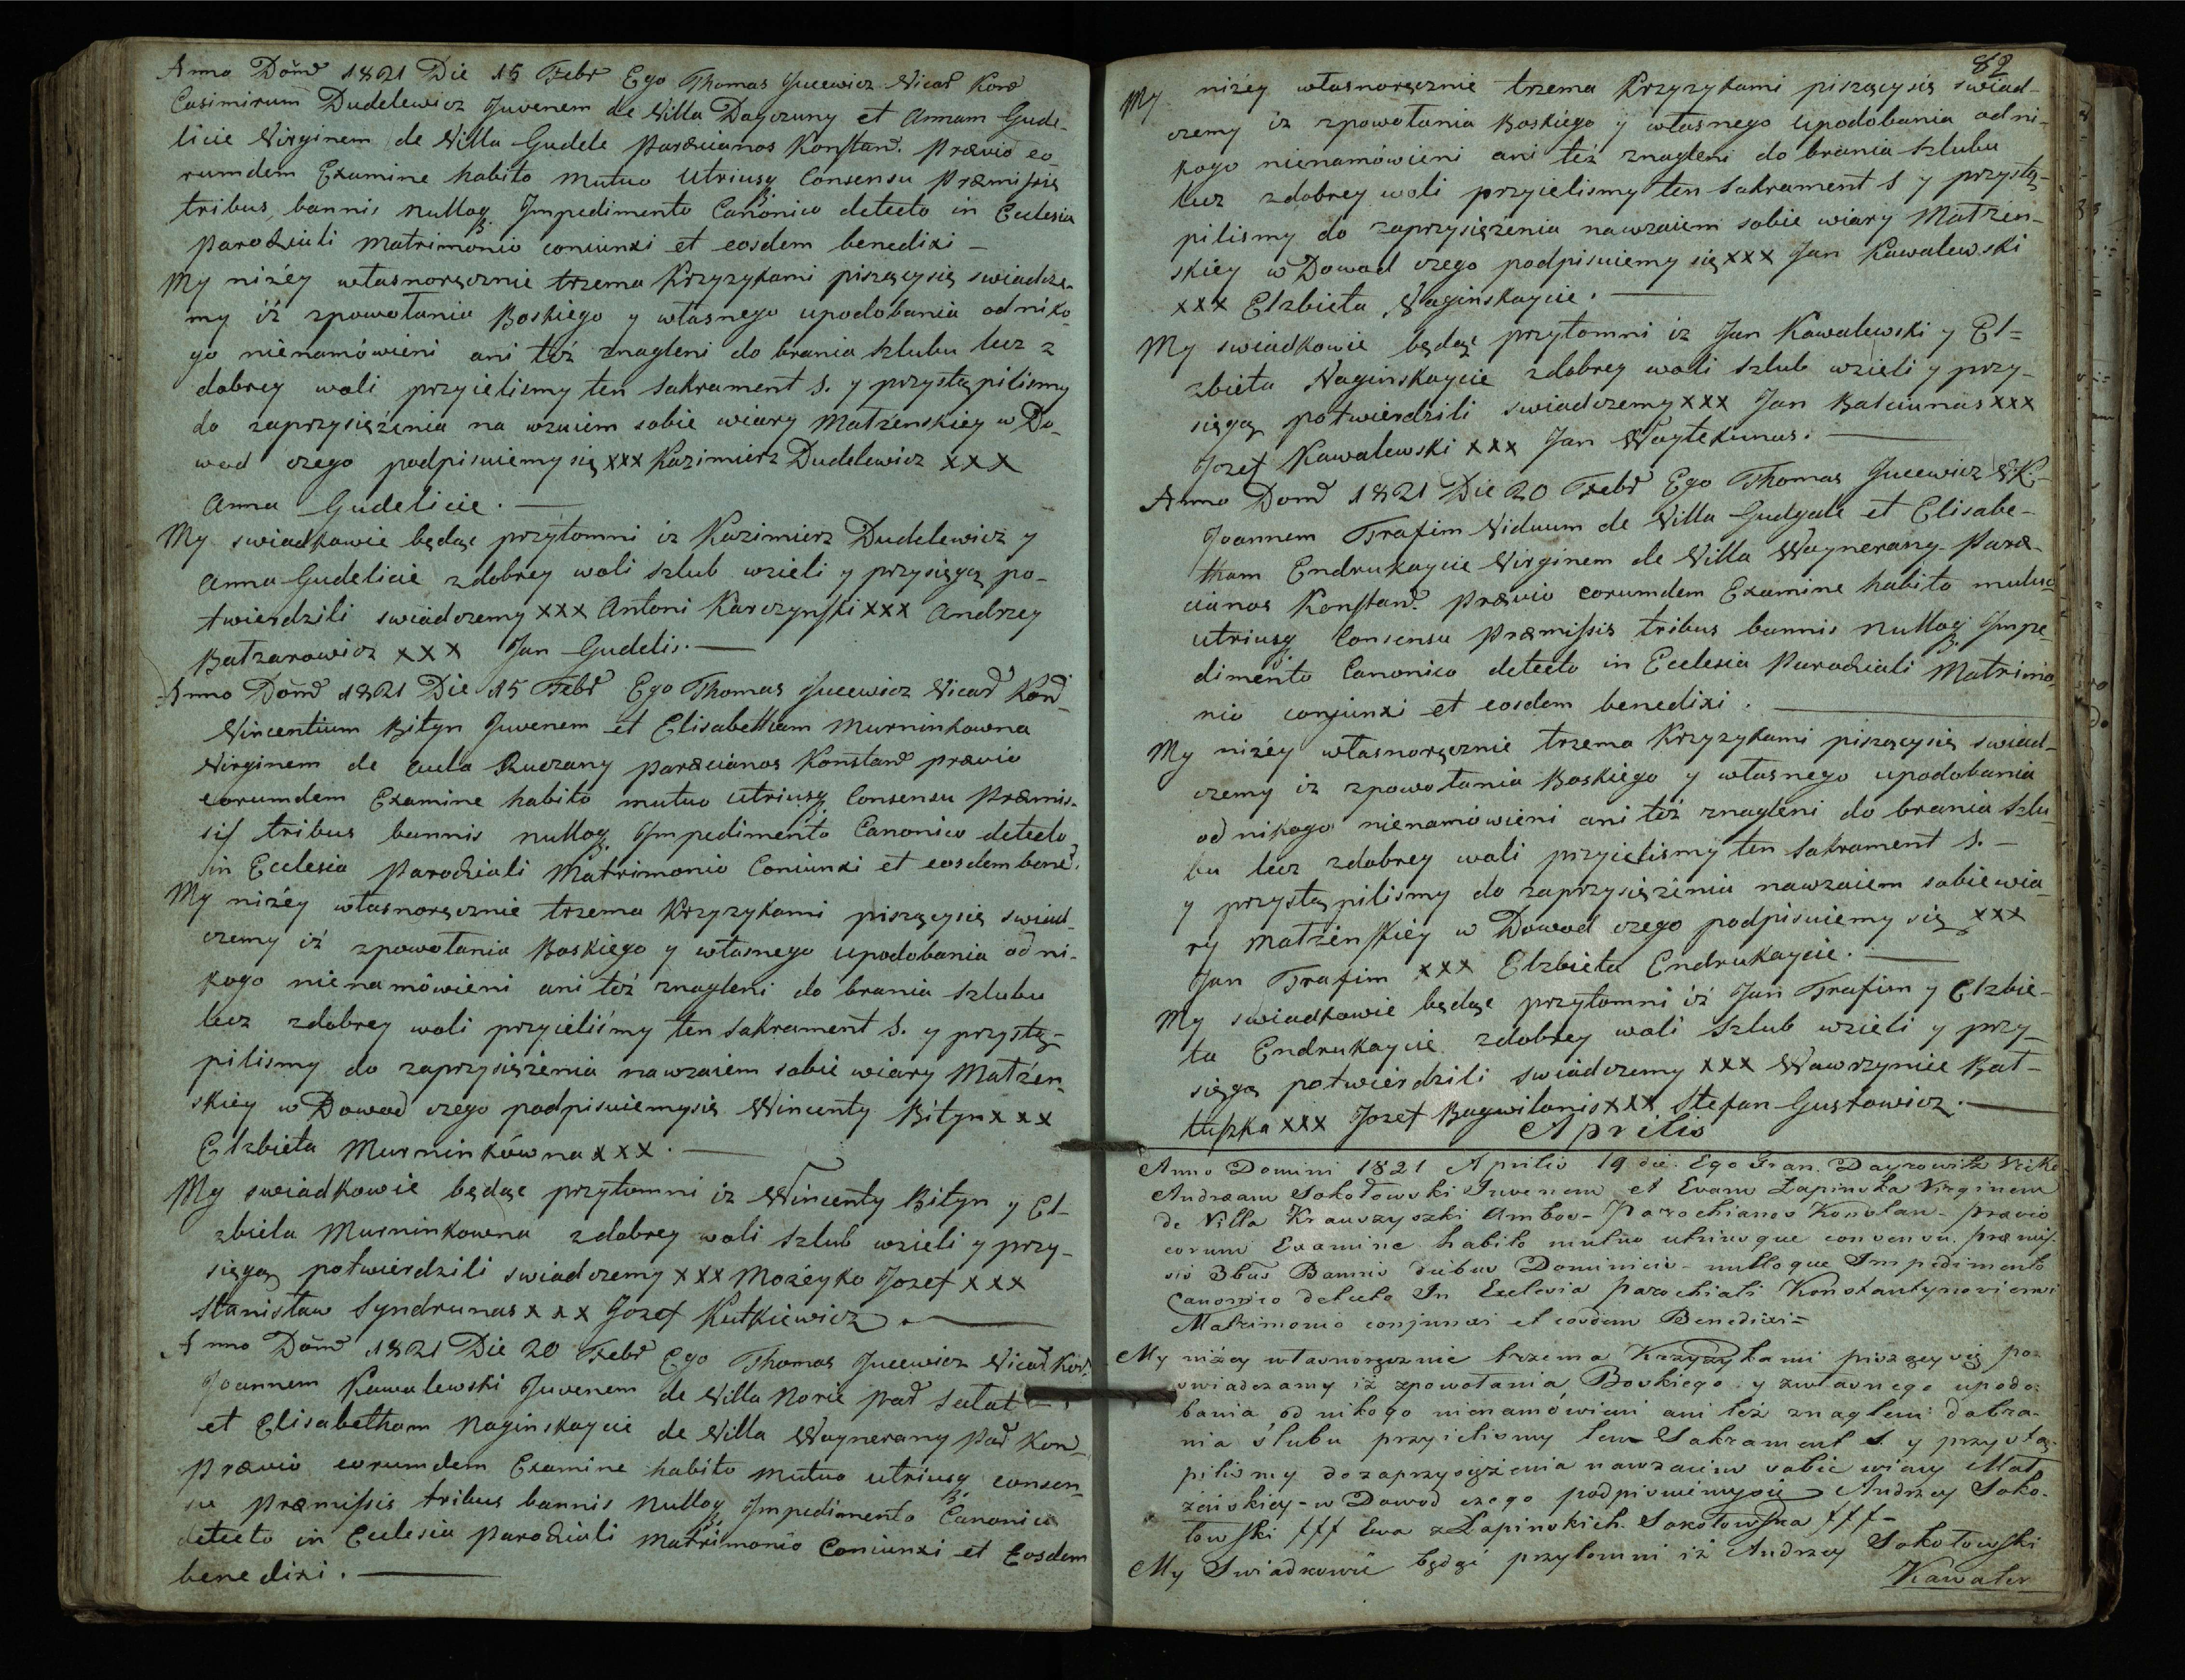 Anno Domd 1821 Die 15 Febr Ego Thomas Jucewicz Vicar Kons
Casimirum Dudelewicz Juvenem de Villa Dayczuny et Annam Gude-
licie Virginem de Villa Gudele Paræcianos Konstand. Prævio eo-
rumdem Examine habito mutuo Utriusq Consensu Præmissis
tribus bannis nulloq Impedimento Canonico detecto in Ecclesia
Parochiali Matrimonio coniunxi et eosdem benedixi –
My niżéy własnoręcznie trzema Krzyzykami piszącysię swiadcze-
my iż zpowołania Boskiego y własnego upodobania od niko-
go nienamówieni ani też znagleni do brania szlubu lecz z
dobrey woli przyielismy ten Sakrament S. y przystąpilismy
do zaprzysiężenia na wzaiem sobie wiary Małżenskiey w Do-
wod czego podpisuiemy się xxx Kazimierz Dudelewicz xxx
Anna Gudelicie.
My swiadkowie będąc przytomni iz Kazimierz Dudelewicz y
Anna Gudelicie zdobrey woli szlub wzieli y przysięgą po-
twierdzili swiadczemy xxx Antoni Karczynski xxx Andrzey
Batzarowicz xxx Jan Gudelis.
Anno Domd 1821 Die 15 Febr Ego Thomas Jucewicz Vicar Kond
Vincentium Bityn Juvenem et Elisabetham Murninkowna
Virginem de Aula Ruczany Paræcianos Konstand prævio
eorumdem Examine habito mutuo Utriusq Consensu Præmis-
sis tribus bannis nulloq Impedimento Canonico detecto
in Ecclesia Parochiali Matrimonio Coniunxi et eosdem bened.
My niżéy własnoręcznie trzema Krzyzykami piszącysię swiad-
czemy iż zpowołania Boskiego y własnego upodobania od ni-
kogo nienamówieni ani też znagleni do brania szlubu
lecz zdobrey woli przyieliśmy ten Sakrament S. y przystą-
pilismy do zaprzysiężenia nawzaiem sobie wiary Małżen-
skiey w Dowod czego podpisuiemysię Wincenty Bityn xxx
Elzbieta Murninkówna xxx.
My swiadkowie będąc przytomni iz Wincenty Bityn y El-
zbieta Murninkowna zdobrey woli szlub wzieli y przy-
sięgą potwierdzili swiadczemy xxx Możeyko Jozef xxx
Stanisław Syndrunas xxx Jozef Kutkiewicz.
Anno Domd 1821 Die 20 Febr Ego Thomas Jucewicz Vicar Kon.
Joannem Kawalewski Juvenem de Villa Norie Par Salat –
et Elisabetham Naginskaycie de Villa Waynerany Par Kon-
Prævio eorumdem Examine habito mutuo utriusq consen-
su Præmissis tribus bannis nulloq Impedimento Canonico
detecto in Ecclesia Parochiali Matrimonio Coniunxi et Eosdem
benedixi.
82
My niżéy własnoręcznie trzema Krzyzykami piszącysię swiad-
czemy iz zpowołania Boskiego y własnego upodobania od ni-
kogo nienamówieni ani też znagleni do brania szlubu
lecz zdobrey woli przyielismy ten Sakrament S y przystą-
pilismy do zaprzysiężenia nawzaiem sobie wiary Małżen-
skiey w Dowod czego podpisuiemy się xxx Jan Kawalewski
xxx Elzbieta Naginskaycie.
My swiadkowie będąc przytomni iz Jan Kawalewski y El=
zbieta Naginskaycie zdobrey woli szlub wzieli y przy-
sięgą potwierdzili swiadczemy xxx Jan Balciunas xxx
Jozef Kawalewski xxx Jan Waytekunas.
Anno Domd 1821 Die 20 Febr Ego Thomas Jucewicz VK-
Joannem Trafim Viduum de Villa Gudgale et Elisabe-
tham Endrukaycie Virginem de Villa Waynerany Paræ-
cianos Konstand. Prævio eorumdem Examine habito mutuo
utriusq Consensu Præmissis tribus bannis nulloq Impe-
dimento Canonico detecto in Ecclesia Parochiali Matrimo-
nio conjunxi et eosdem benedixi.
My niżéy własnoręcznie trzema Krzyzykami piszącysię swiad-
czemy iz zpowołania Boskiego y własnego upodobania
od nikogo nienamówieni ani też znagleni do brania szlu-
bu lecz zdobrey woli przyielismy ten Sakrament S. –
y przystąpilismy do zaprzysiężenia nawzaiem sobie wia-
ry małżenskiey w Dowod czego podpisuiemy się xxx
Jan Trafim xxx Elzbieta Endrukaycie.
My swiadkowie będąc przytomni iż Jan Trafim y Elzbie-
ta Endrukaycie zdobrey woli szlub wzieli y przy-
sięgą potwierdzili swiadczemy xxx Wawrzyniec Bal-
tuszka xxx Jozef Bagwilonis xxx Stefan Gustowicz.
Aprilis
Anno Domini 1821 Aprilis 19 die. Ego Fran. Dayrowicz
Andræam Sokołowski Juvenem et Evam Łapinska Virginem
de Villa Krauszyszki Ambos – Parochianos Konstan – prævio
eorum Examine habito mutuo utriusque consensu. præmis-
sis 3bus Bannis diebus Dominicis – nulloque Impedimento
Canonico detecto In Ecclesia parochiali Konstantynoviensi
Matrimonio conjunxi et eosdem Benedixi=
My niżey własnoręcznie trzema Krzyzykami piszącysię poz-
swiadczamy iż zpowołania Boskiego y zwłasnego upodo-
bania od nikogo nienamówieni ani też znagleni dobra-
nia ślubu przyielismy ten Sakrament S. y przystą-
pilismy do zaprzysiężenia nawzaiem sobie wiary Mał-
żeńskiey – w Dowod czego podpisuiemysię Andrzey Soko-
łowski fff Ewa z Łapinskich Sokołowska fff –
My Swiadkowie będąc przytomni iż Andrzey Sokołowski
Kawaler